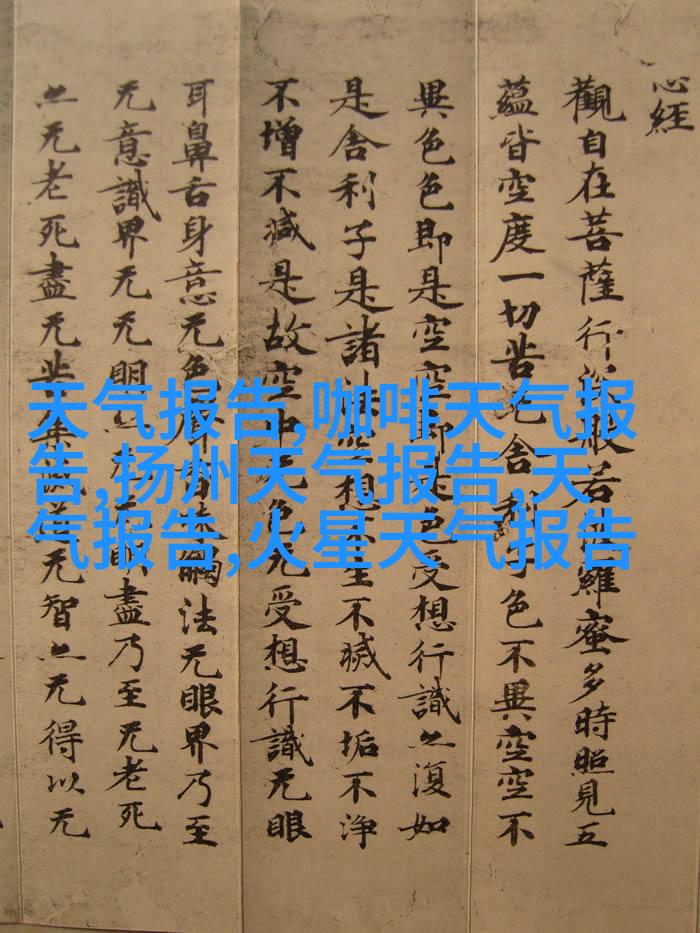 心經
觀自在菩薩行深般若波羅蜜多時照見五
蘊皆空度一切苦厄舍利子色不異空空不
異色色即是空空即是色受想行識亦復如
是舍利子是諸法空想不生不滅不垢不淨
不增不減是故空中无色无受想行識无眼
耳鼻舌身意无色聲香味觸法无眼界乃至
无意識界无无明亦无无明盡乃至无老死
亦无老死盡无苦集滅道无智亦无得以无
天气报告,咖啡天气报
告,扬州天气报告,天
气报告,火星天气报告